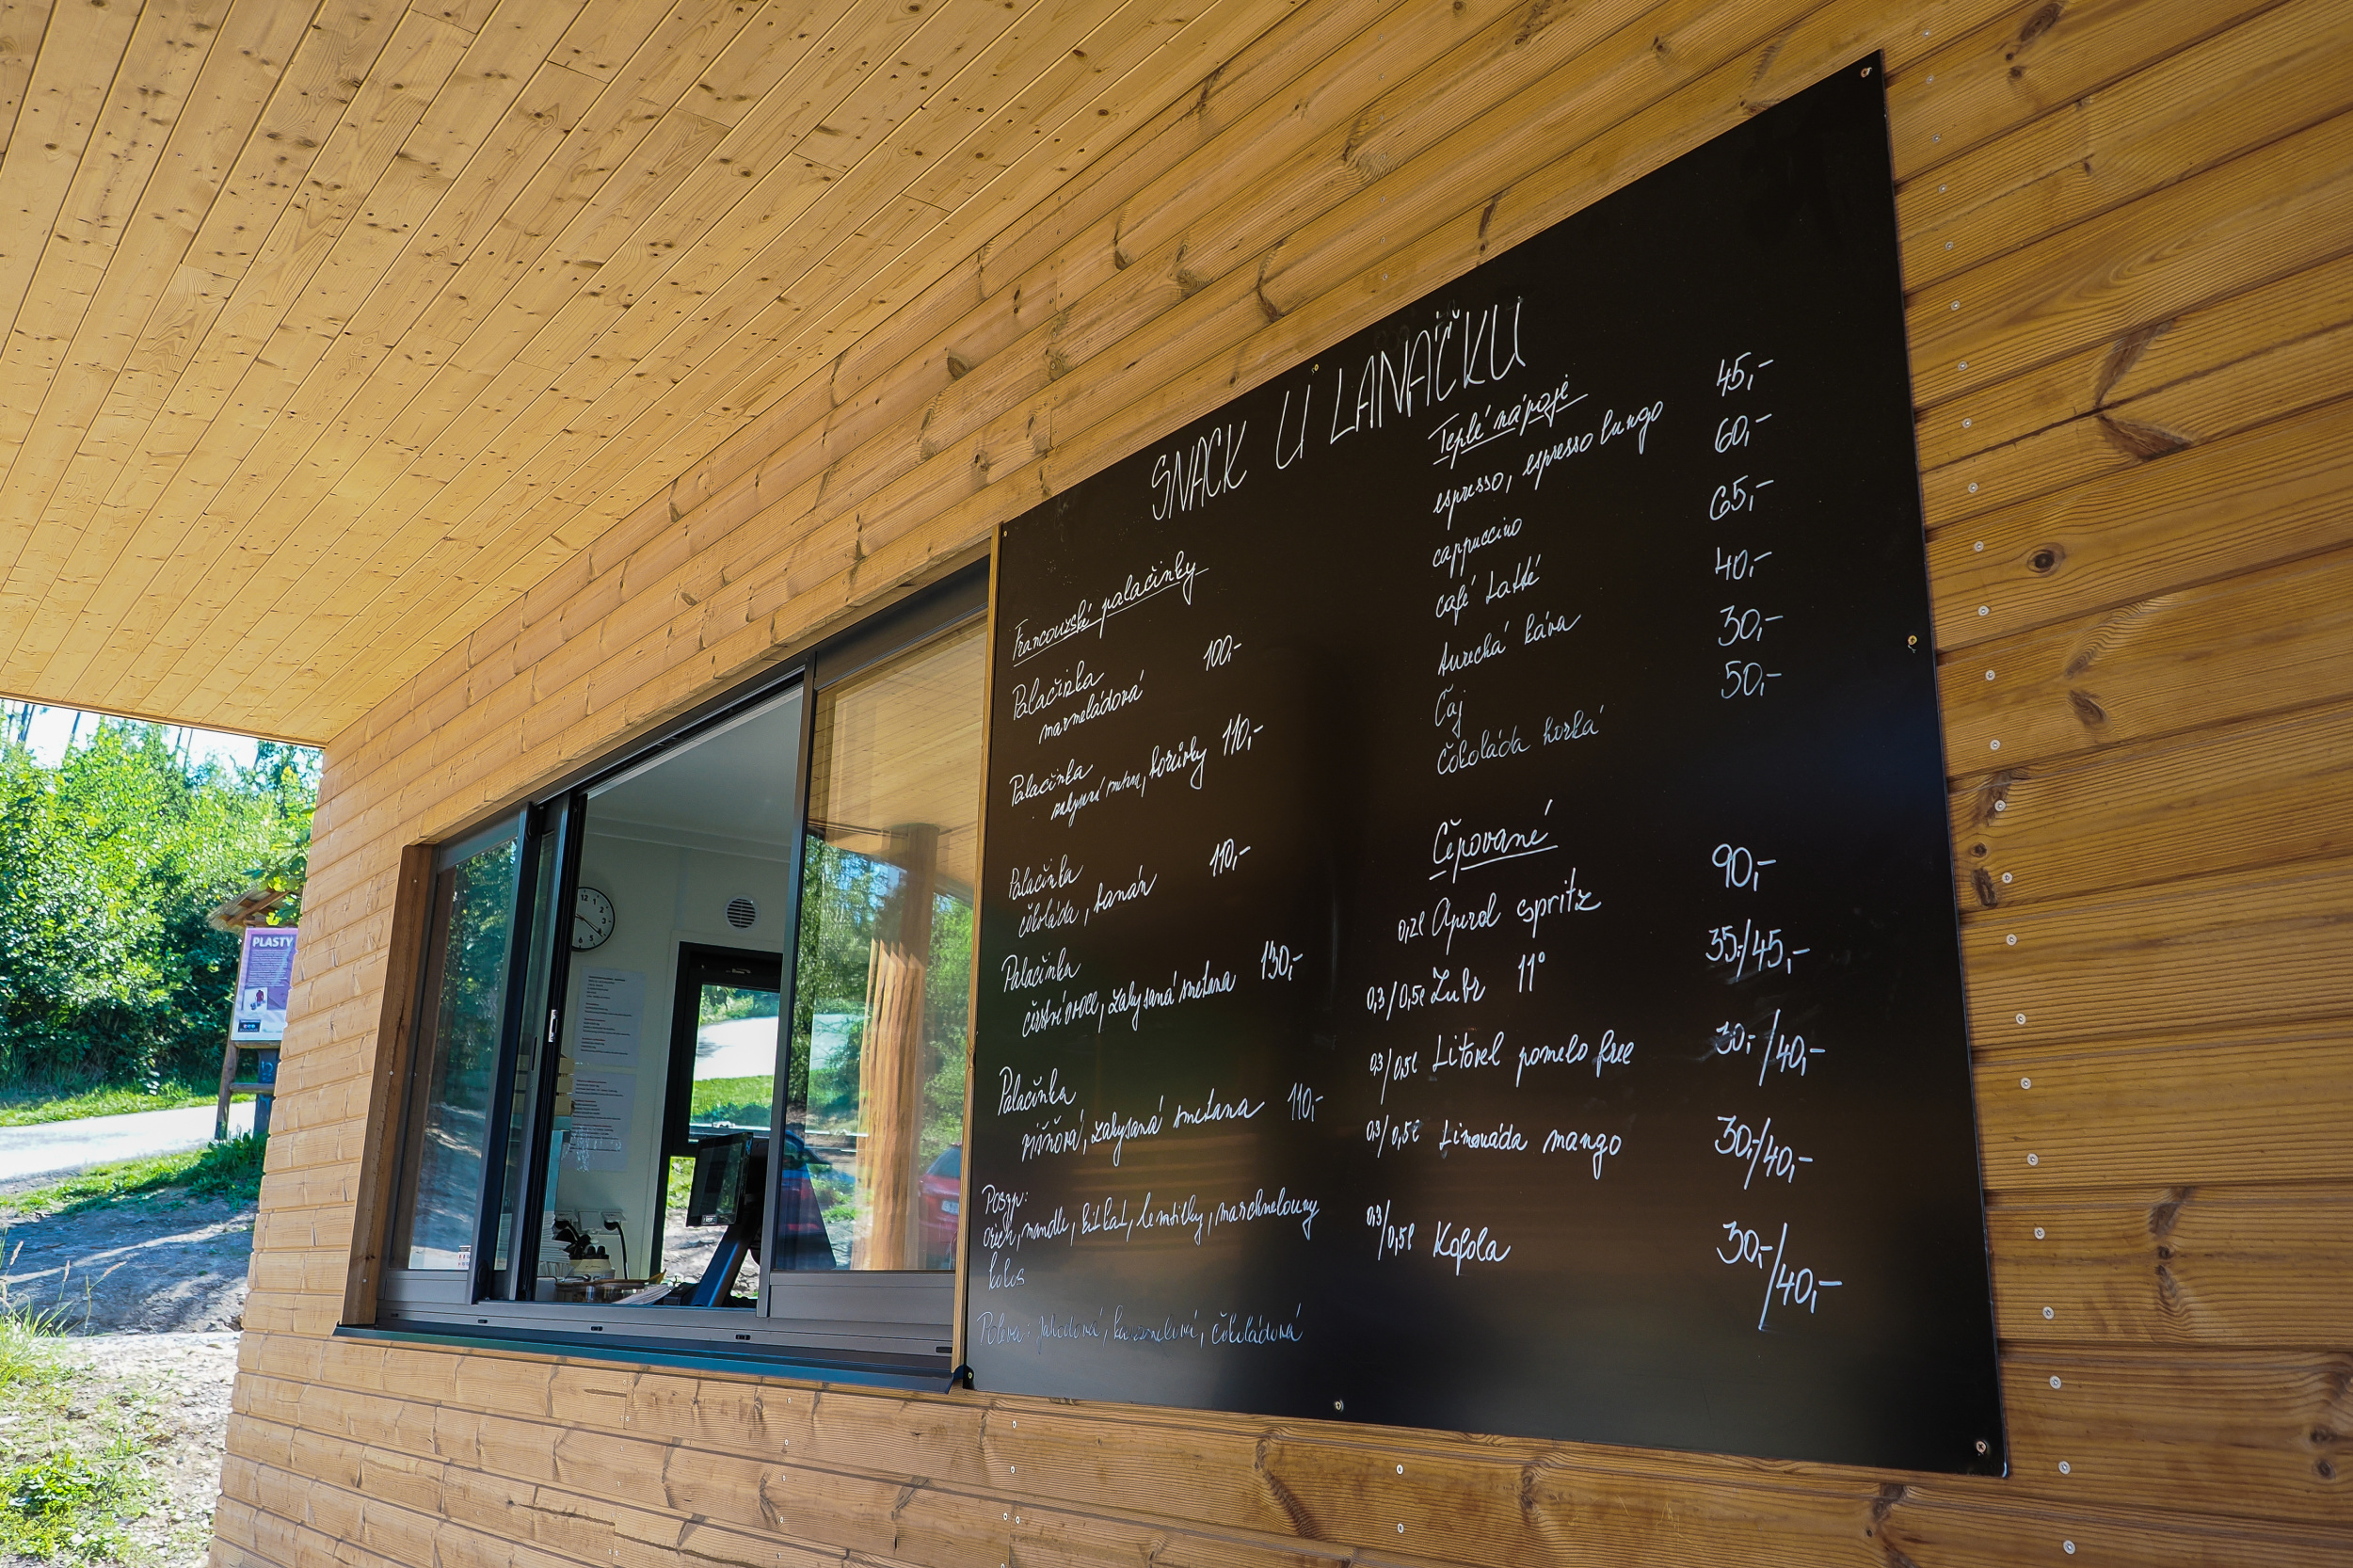 SNACK U LANÁČKU
Francouzské palačinky
Palačinka 100,-
marmeládová
Palačinka
zakysaná smetana, borůvky 110,-
Palačinka 110,-
čokoláda, banán
Palačinka
čerstvé ovoce, zakysaná smetana 130,-
Palačinka
višňová, zakysaná smetana 110,-
Posyp:
ořech, mandle, kitkat, lentilky, marshmelouny
kokos
Poleva: jahodová, karamelová, čokoládová
Teplé nápoje
espresso, espresso lungo 45,-
cappuccino 60,-
café Latté 65,-
turecká káva 40,-
Čaj 30,-
čokoláda horká 50,-
Čepované
0,2l Aperol spritz 90,-
0,3/0,5l Zubr 11° 35,-/45,-
0,3/0,5l Litovel pomelo free 30,-/40,-
0,3/0,5l Limonáda mango 30,-/40,-
0,3/0,5l Kofola 30,-/40,-
PLASTY